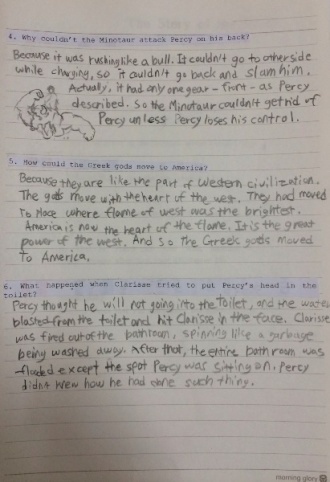 4. Why couldn't the Minotaur attack Percy on his back?
Because it was rushing like a bull. It couldn't go to other side
while charging, so it couldn't go back and slam him.
Actually, it had only one gear - front - as Percy
described. So the Minotaur couldn't get rid of
Percy unless Percy loses his control.
5. How could the Greek gods move to America?
Because they are like the part of Western civilization.
The gods move with the heart of the west. They had moved
to place where flame of west was the brightest.
America is now the heart of the flame. It is the great
power of the west. And so the Greek gods moved
to America.
6. What happened when Clarisse tried to put Percy's head in the
toilet?
Percy thought he will not going into the toilet, and the water
blasted from the toilet and hit Clarisse in the face. Clarisse
was fired out of the bathroom, spinning like a garbage
being washed away. After that, the entire bathroom was
flooded except the spot Percy was sitting on. Percy
didn't knew how he had done such thing.
morning glory